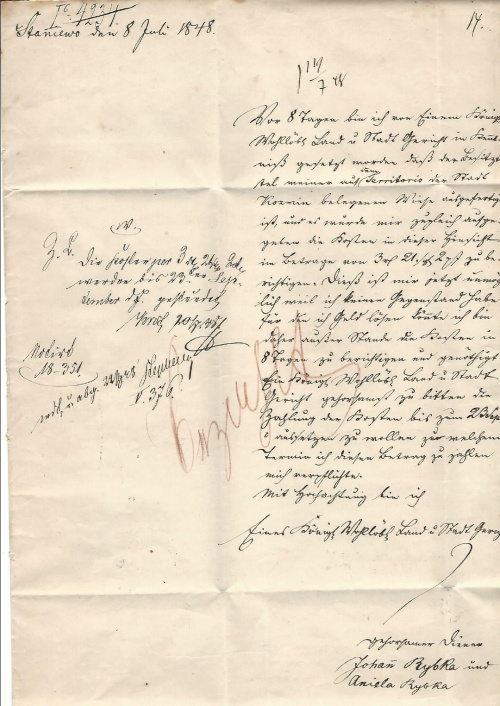 Staniewo den 8 Juli 1848.
14.
14/7 48
Vor 8 Tagen bin ich von Einem König
Wohllöbl Land u Stadt Gericht in Kennt-
niß gesetzt worden daß der Besitz-
titel meiner auf dem Territorio der Stadt
belegenen Wiese ausgefertig
ist, und es wurde mir zugleich aufge-
geben die Kosten in dieser Hinsicht
im Betrage von 3 rf 21 sg 2 pf zu be-
richtigen. Dieß ist mir jetzt unmög-
lich weil ich keinen Gegenstand habe
für den ich Geld lösen könnte ich bin
daher außer Stande die Kosten in
8 Tagen zu berichtigen und genöthigt
Ein Königl Wohllöbl Land u Stadt
Gericht gehorsamst zu bitten die
Zahlung der Kosten bis zum
aussetzen zu wollen zu welchem
Termin ich diesen Betrag zu zahlen
mich verpflichte.
Mit Hochachtung bin ich
Eines Königl Wohllöbl Land u Stadt Geric
gehorsamer Diener
Johañ Rybka und
Aniela Rybka
v.
Z. B.
Die Kosten per 3
werden bis 23ten Sep-
tember d. J. gestundet
Notirt
18-351.
V. 376.
bezahlt